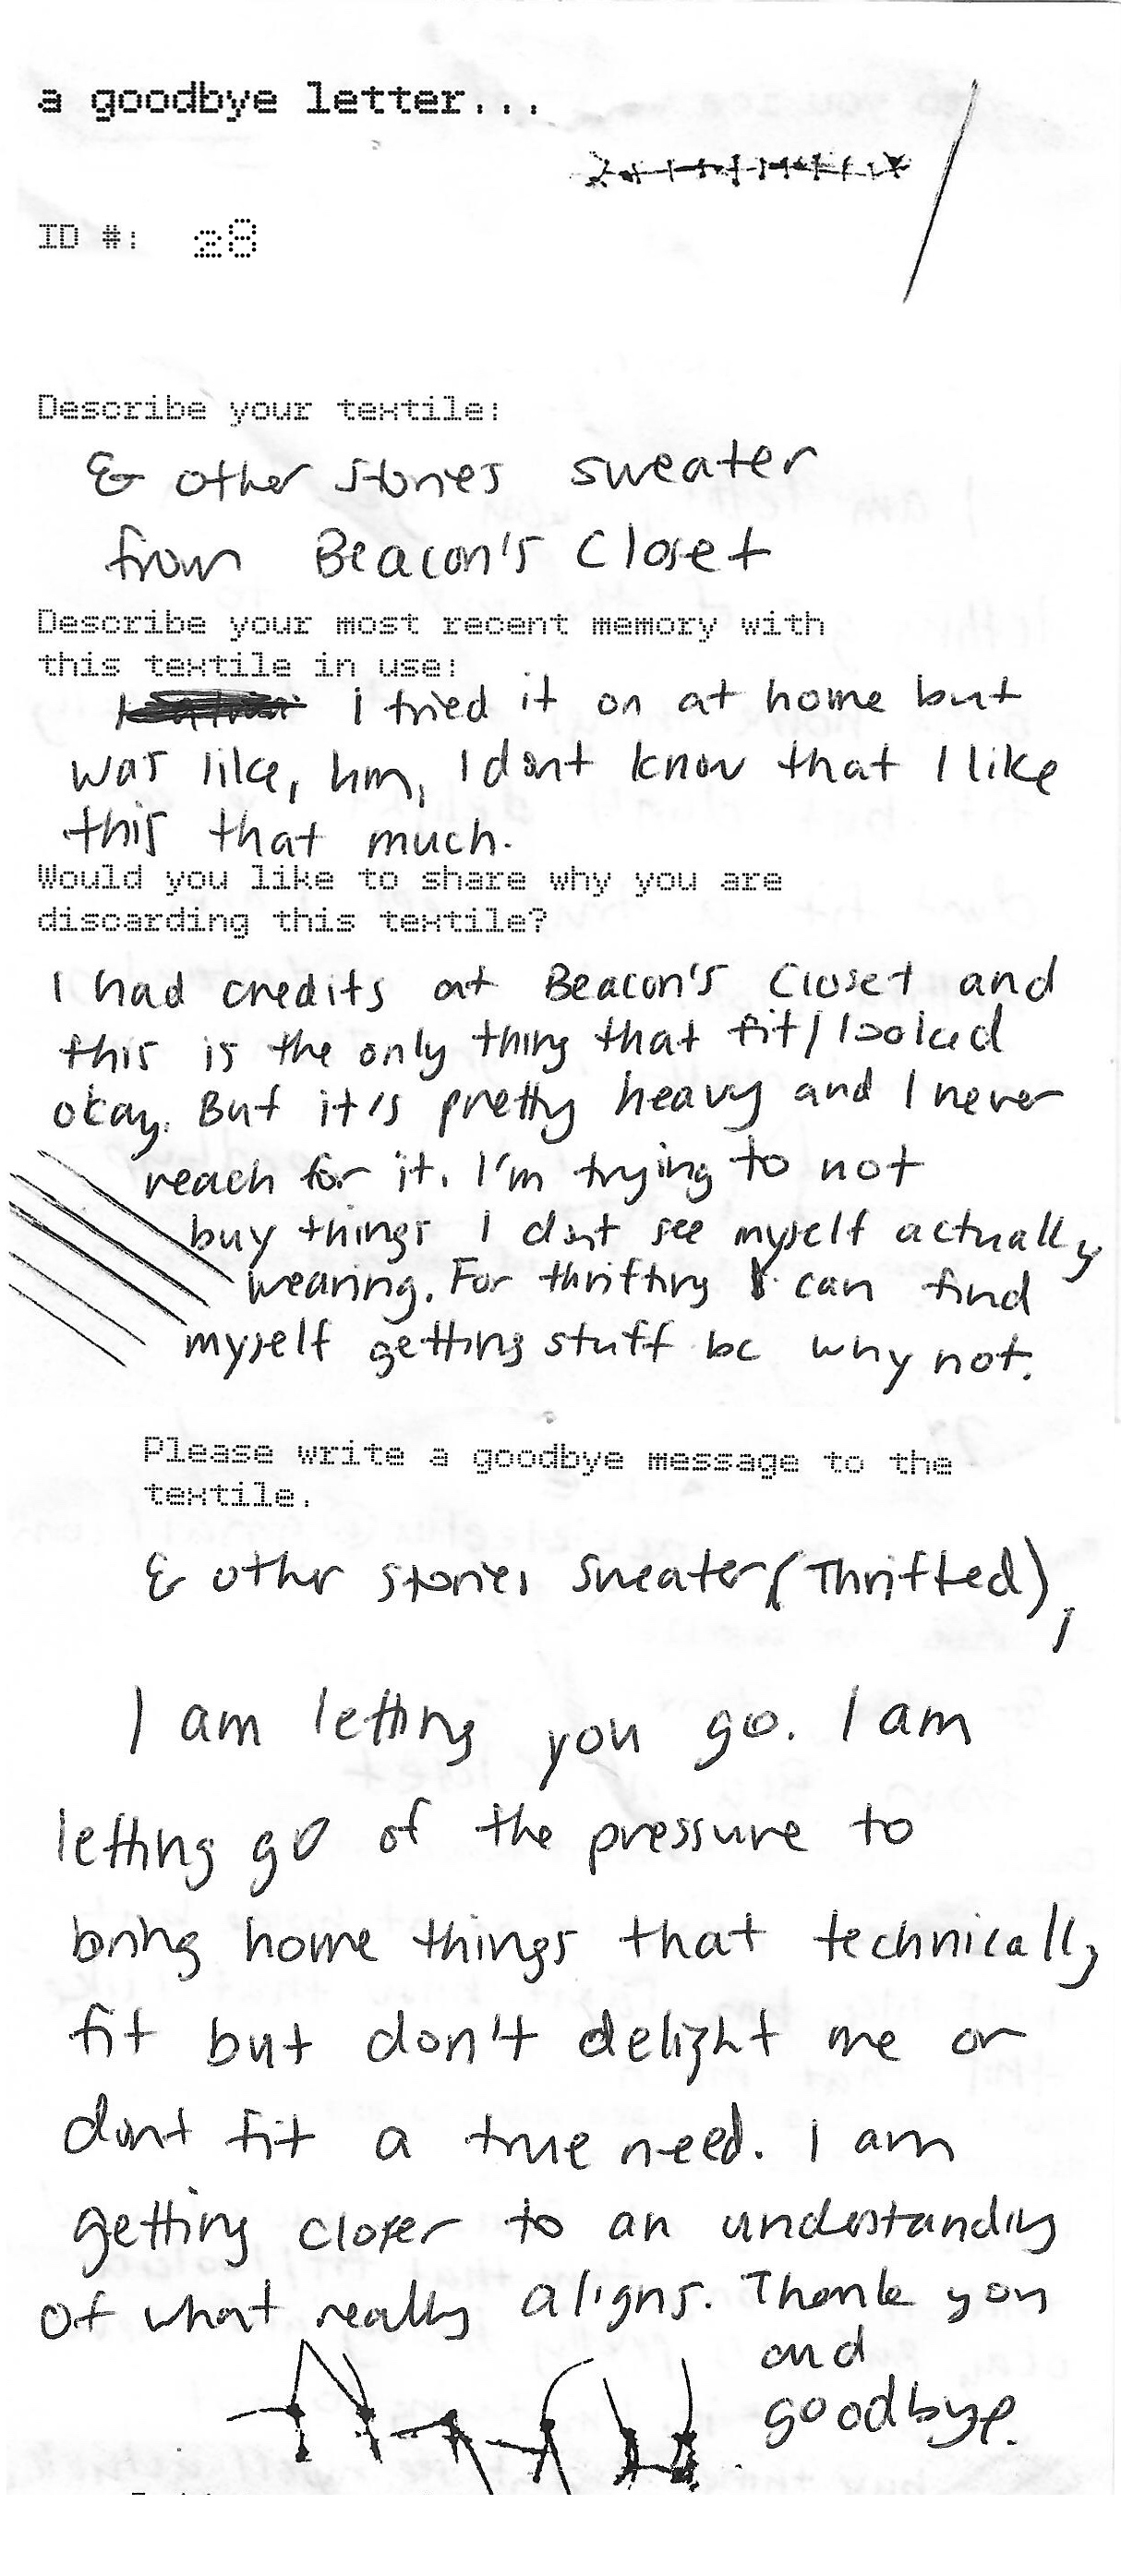 a goodbye letter...
ID #: 28
Describe your textile:
& other stories sweater
from Beacon's Closet
Describe your most recent memory with
this textile in use:
I tried it on at home but
was like, hm, I dont know that I like
this that much.
Would you like to share why you are
discarding this textile?
I had credits at Beacon's Closet and
this is the only thing that fit/looked
okay. But it's pretty heavy and I never
reach for it. I'm trying to not
buy things I dont see myself actually
wearing. For thrifting I can find
myself getting stuff bc why not.
Please write a goodbye message to the
textile.
& other stories sweater (Thrifted),
I am letting you go. I am
letting go of the pressure to
bring home things that technically
fit but don't delight me or
dont fit a true need. I am
getting closer to an understanding
of what really aligns. Thank you
and
goodbye.